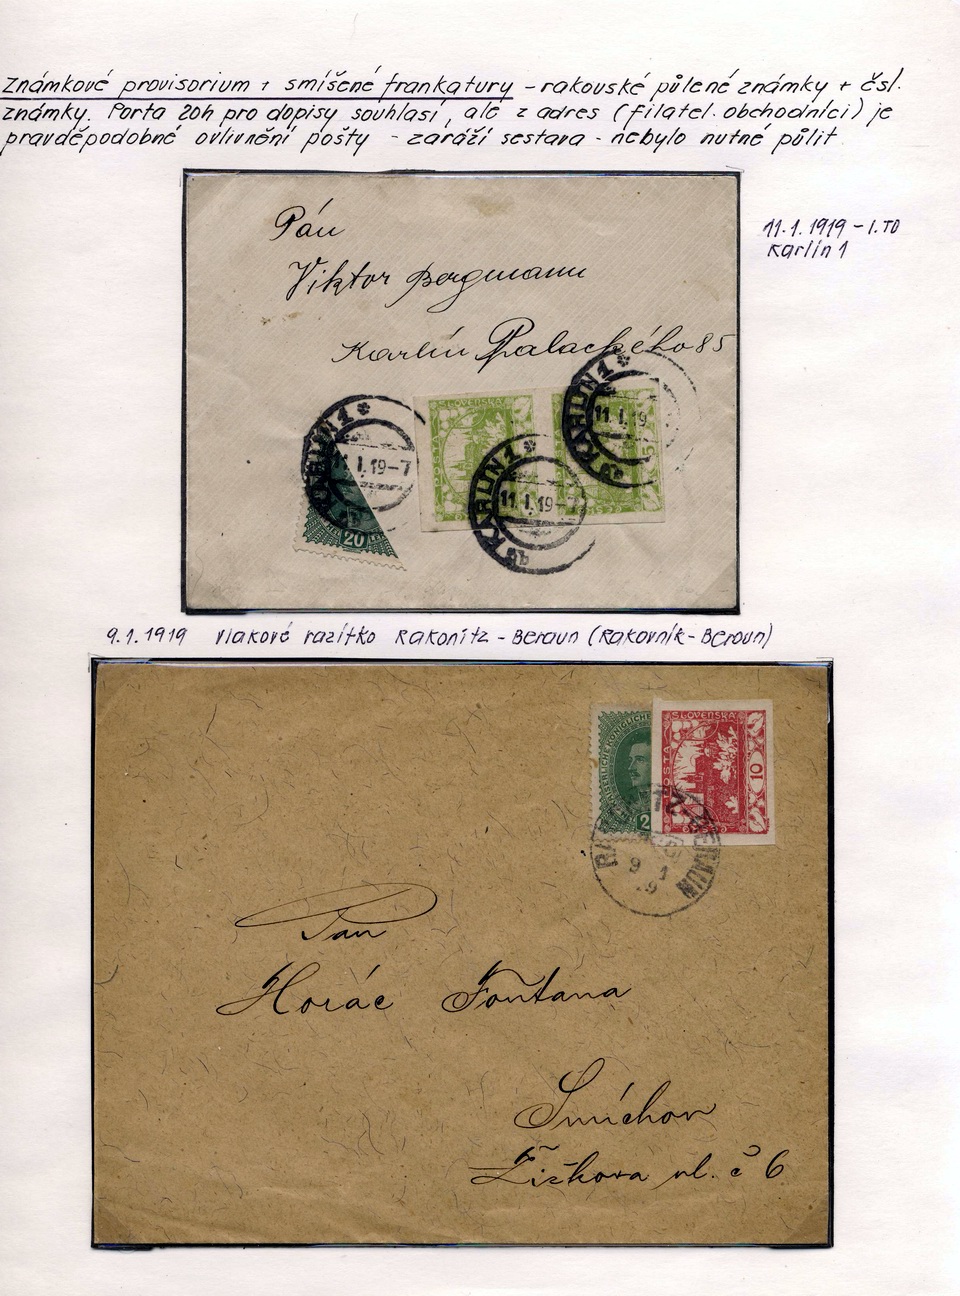 Známkové provisorium + smíšené frankatury - rakouské půlené známky + čsl.
známky. Porta 20h pro dopisy souhlasí, ale z adres (filatel. obchodníci) je
pravděpodobné ovlivnění pošty - zaráží sestava - nebylo nutné půlit
Pán
Viktor Bergmann
Karlín Palackého 85
11.1.1919 - I.TD
Karlín 1
SLOVENSKÁ
POŠTA
5
KARLÍN 1
11.I.19-7
KARLÍN 1
11.I.19-7
KARLÍN 1
11.I.19
20
9.1.1919 vlakové razítko Rakonitz - Beraun (Rakovník - Beroun)
KAISERLICHE KÖNIGLICHE
2
SLOVENSKÁ
POŠTA
10
BERAUN
9 1
Pan
Horác Fontana
Smíchov
Žižkova ul. č 6